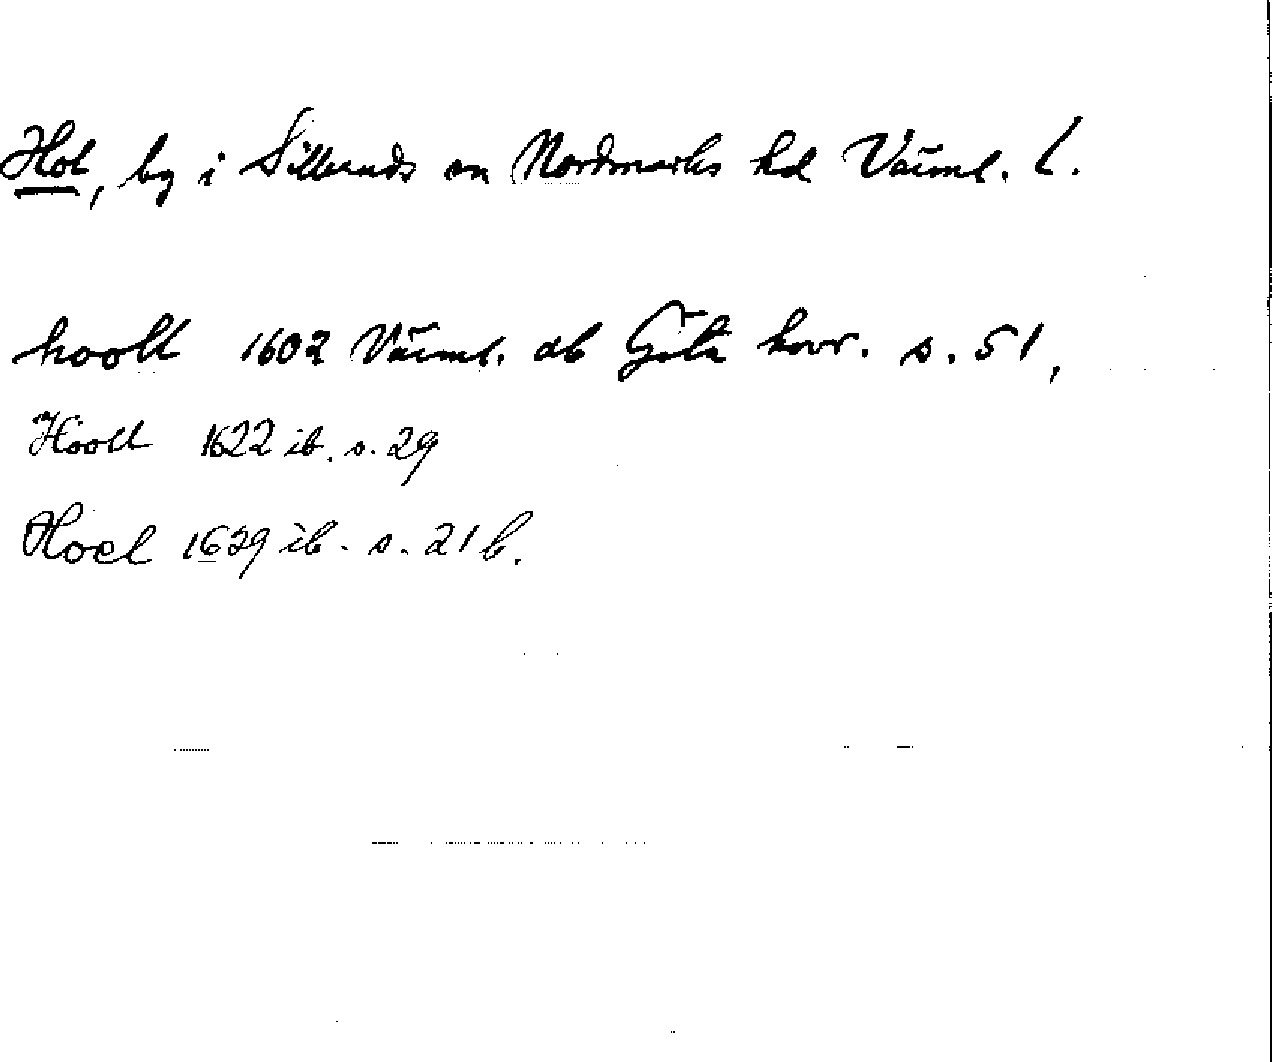 Hol, by i Silleruds sn Nordmarks hd Värml. l.
hooll 1602 Värml. ab Göta hovr. s. 51,
Hooll 1622 ib. s. 29
Hoel 1629 ib. s. 21 b.